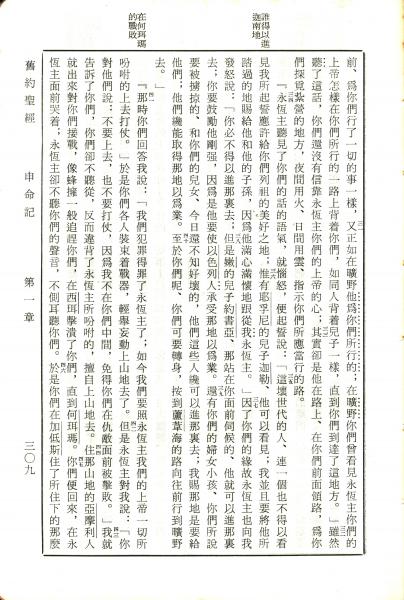 誰得以進
迦南地
在何珥瑪
的戰敗
前、爲你們行了一切的事一樣，又正如在曠野他爲你們所行的；在曠野你們曾看見永恆主你們的
上帝怎樣在你們所行的一路上背着你們、如同人背着兒子一樣，直到你們到達了這地方。』雖然
聽了這話，你們還沒有信靠永恆主你們的上帝的心；其實卻是他在路上、在你們前面領路，爲你
們探覓紮營的地方，夜間用火、日間用雲、指示你們所應當行的路。
『永恆主聽見了你們的話的語氣，就惱怒，便起誓說：「這壞世代的人、連一個也不得以看
見我所起誓應許給你們列祖的美好之地；惟有耶孚尼的兒子迦勒、他可以看見；我並且要將他所
踏過的地賜給他和他的子孫，因爲他滿心滿懷地跟從我永恆主。」因了你們的緣故永恆主也向我
發怒說：「你必不得以進那裏去；但是嫩的兒子約書亞、那站在你面前伺候的、他就可以進那裏
去；你要鼓勵他剛强，因爲是他要使以色列人承受那地以爲業。還有你們的婦女小孩、你們所說
要被擄掠的、和你們的兒女、今日還不知好壞的，他們這些人纔可以進那裏去；我賜那地是要給
他們；他們纔能取得那地以爲業。至於你們呢、你們可要轉身，按到蘆葦海的路向往前行到曠野
去。」
『那時你們回答我說：「我們犯罪得罪了永恆主了；如今我們要照永恆主我們的上帝一切所
吩咐的上去打仗。」於是你們各人裝束着戰器，輕舉妄動上山地去了。但是永恆主對我說：「你
對他們說：不要上去，也不要打仗，因爲我不在你們中間，免得你們在仇敵面前被擊敗。」我就
告訴了你們，你們卻不聽從、反而違背了永恆主所吩咐的，擅自上山地去。住那山地的亞摩利人
就出來對你們接戰，像蜂擁一般追趕你們，在西珥擊潰了你們，直到何珥瑪。你們便回來，在永
恆主面前哭着；永恆主卻不聽你們的聲音、不側耳聽你們。於是你們在加低斯住了所住下的那麼
舊約聖經　申命記　第一章　三〇九